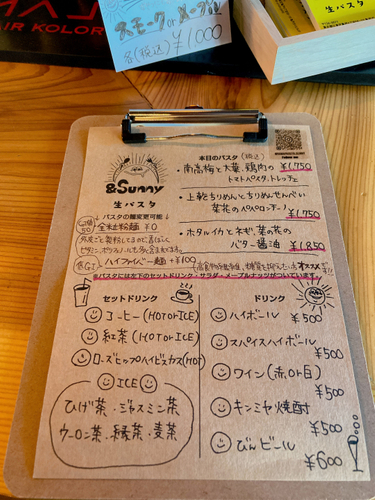 スモーク or スープ
各(税込) ¥1000
AIR KOLOR
生パスタ
&Sunny
生パスタ
本日のパスタ(税込)
・南高梅と大葉、鶏肉の ¥1,750
トマトペペパスタ、トレッチェ
・上乾ちりめんとちりめんせんべい
菜花のペペロンチーノ
¥1,750
・ホタルイカとネギ、菜の花の
バター醤油 ¥1,850
\ パスタの麺変更可能 /
全粒粉麺 ¥0
ハイファイバー麺 +¥100
※パスタには左下のセットドリンク・サラダ・メープルナッツがついています。
セットドリンク
コーヒー(HOT or ICE)
紅茶(HOT or ICE)
ローズヒップハイビスカス(HOT)
ICE
ひげ茶・ジャスミン茶
ウーロン茶・緑茶・麦茶
ドリンク
ハイボール
¥500
スパイスハイボール
¥500
ワイン(赤 or 白)
¥500
キンミヤ焼酎
¥500
びんビール
¥600